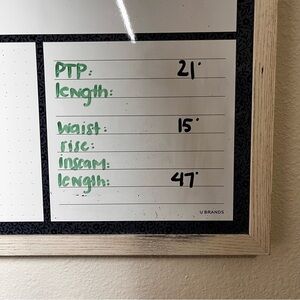 PTP: 21"
length:
waist: 15"
rise:
inseam:
length: 47"
U BRANDS